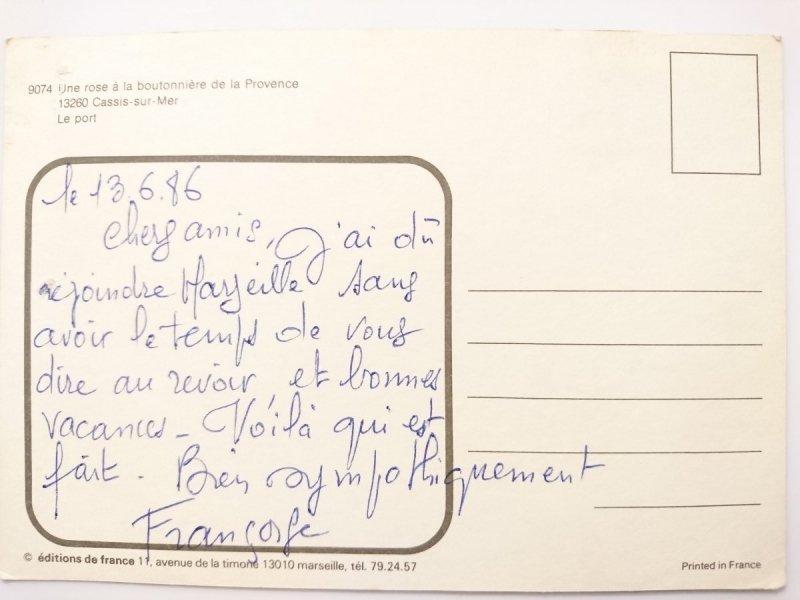 9074 Une rose à la boutonnière de la Provence
13260 Cassis-sur-Mer
Le port
le 13.6.86
chers amis, j'ai dû
rejoindre Marseille sans
avoir le temps de vous
dire au revoir, et bonnes
vacances - Voilà qui est
fait. Bien sympathiquement
Françoise
© éditions de france 11, avenue de la timone 13010 marseille, tél. 79.24.57
Printed in France